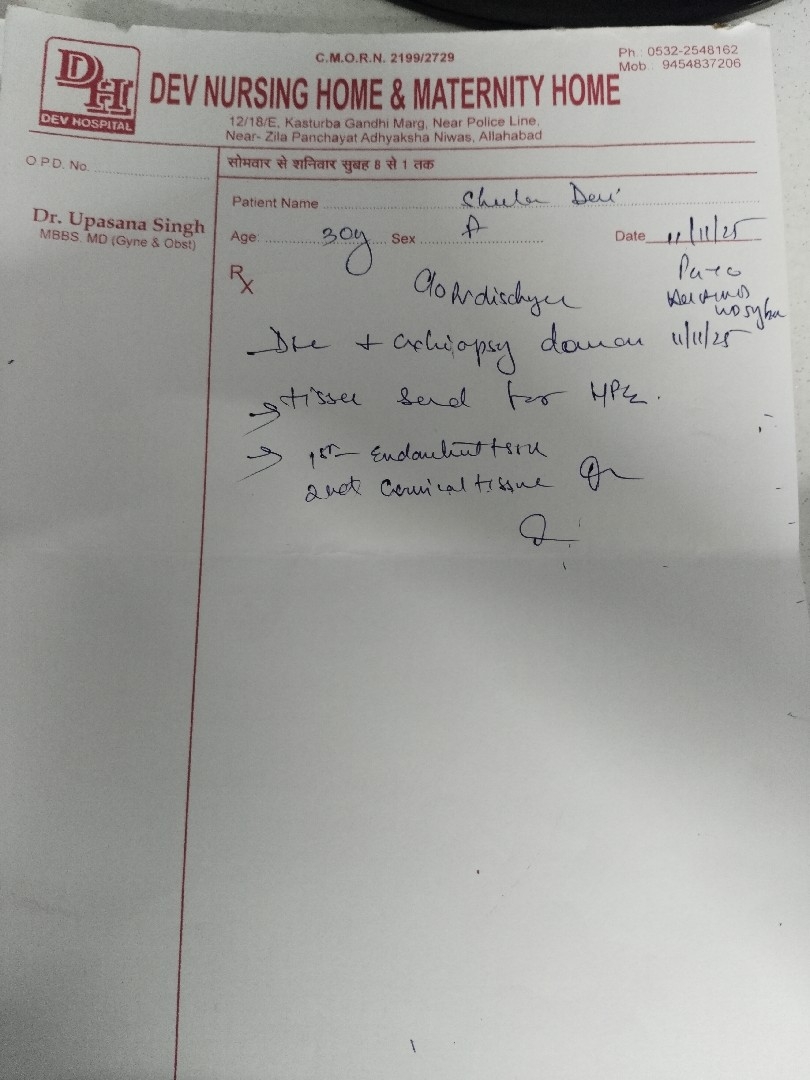 C.M.O.R.N. 2199/2729
Ph.: 0532-2548162
Mob.: 9454837206
DH
DEV HOSPITAL
DEV NURSING HOME & MATERNITY HOME
12/18/E, Kasturba Gandhi Marg, Near Police Line,
Near- Zila Panchayat Adhyaksha Niwas, Allahabad
O.P.D. No.
सोमवार से शनिवार सुबह 8 से 1 तक
Dr. Upasana Singh
MBBS, MD (Gyne & Obst)
Patient Name Devi
Age: 30y Sex Date 11/11/25
Rx
C/o
+ 11/11/25
→ tissue send for HPE.
→ 1st
2nd Cervical tissue